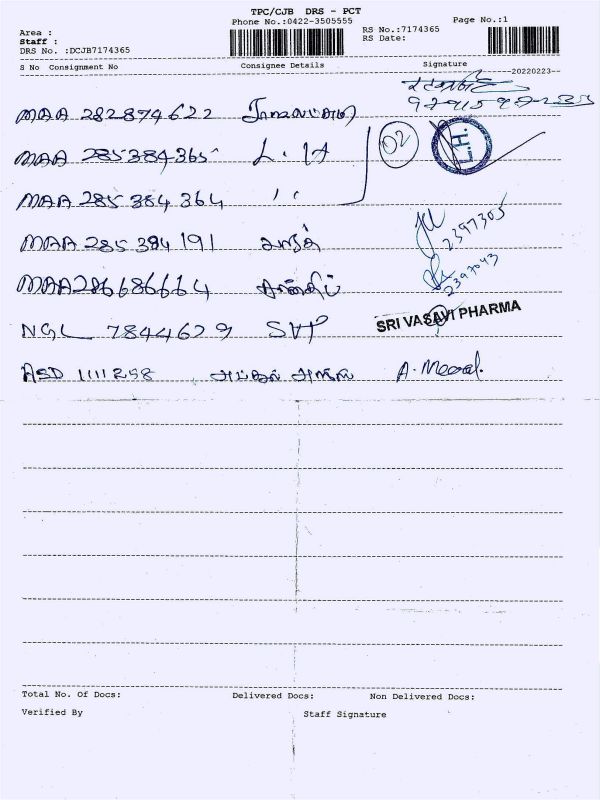 TPC/CJB DRS - PCT
Phone No.:0422-3505555
Page No.:1
Area :
Staff :
DRS No. :DCJB7174365
RS No.:7174365
RS Date:
S No Consignment No Consignee Details Signature
20220223
MAA 282874622
MAA 285384365 L. H
02
L.H.
MAA 285384364 ,,
MAA 285384191
2397305
MAA286686664
2397043
NGL 7844629 SVP SRI VASAVI PHARMA
ASD 1111258 அப்துல் அஜிஸ்
Total No. Of Docs: Delivered Docs: Non Delivered Docs:
Verified By Staff Signature